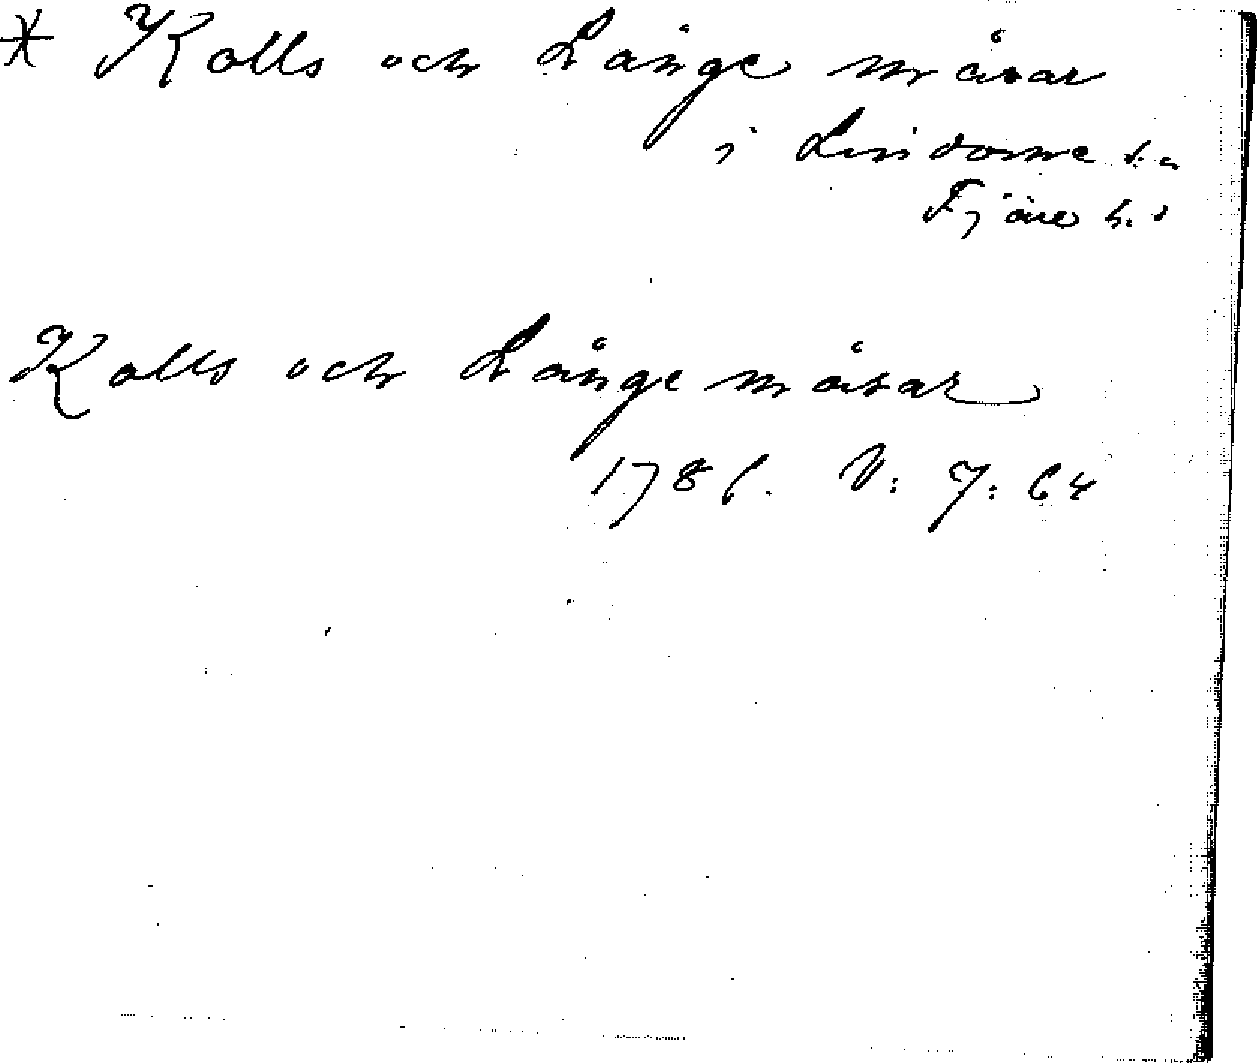 * Kolls och Långe måsar
i Lindome s:n
Fjäre h:d
Kolls och Långe måsar
1786. V: 7: 64